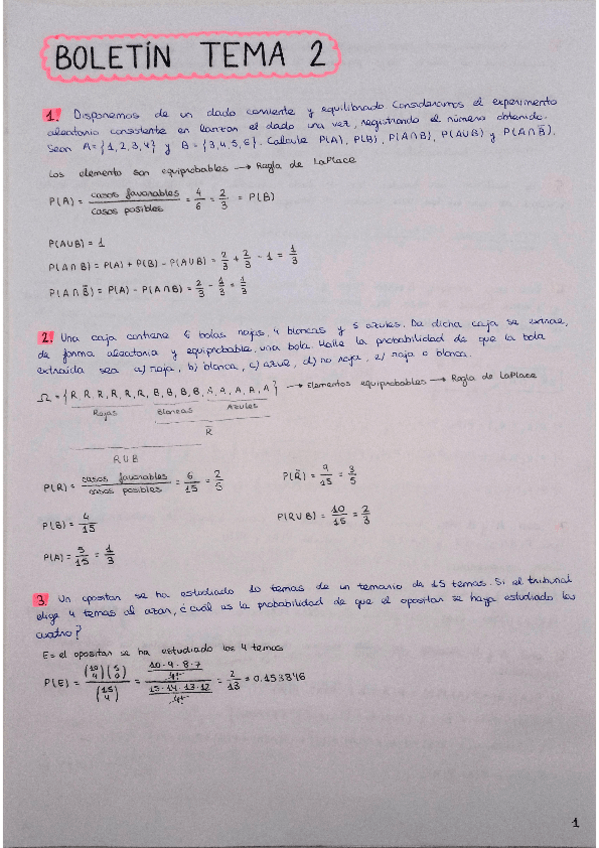 BOLETÍN TEMA 2
1. Disponemos de un dado corriente y equilibrado. Consideramos el experimento
aleatorio consistente en lanzar el dado una vez, registrando el número obtenido.
Sean A = {1, 2, 3, 4} y B = {3, 4, 5, 6}. Calcule P(A), P(B), P(A∩B), P(A∪B) y P(A∩B̄).
Los elemento son equiprobables → Regla de LaPlace
P(A) = casos favorables / casos posibles = 4/6 = 2/3 = P(B)
P(A∪B) = 1
P(A∩B) = P(A) + P(B) - P(A∪B) = 2/3 + 2/3 - 1 = 1/3
P(A∩B̄) = P(A) - P(A∩B) = 2/3 - 1/3 = 1/3
2. Una caja contiene 6 bolas rojas, 4 blancas y 5 azules. De dicha caja se extrae,
de forma aleatoria y equiprobable, una bola. Halle la probabilidad de que la bola
extraída sea a) roja, b) blanca, c) azul, d) no roja, e) roja o blanca.
Ω = {R, R, R, R, R, R, B, B, B, B, A, A, A, A, A} → Elementos equiprobables → Regla de LaPlace
Rojas Blancas Azules
R̄
R∪B
P(R) = casos favorables / casos posibles = 6/15 = 2/5 P(R̄) = 9/15 = 3/5
P(B) = 4/15 P(R∪B) = 10/15 = 2/3
P(A) = 5/15 = 1/3
3. Un opositor se ha estudiado 10 temas de un temario de 15 temas. Si el tribunal
elige 4 temas al azar, ¿cuál es la probabilidad de que el opositor se haya estudiado los
cuatro?
E = el opositor se ha estudiado los 4 temas
P(E) = (10 4)(5 0) / (15 4) = (10·9·8·7 / 4!) / (15·14·13·12 / 4!) = 2/13 = 0.153846
1